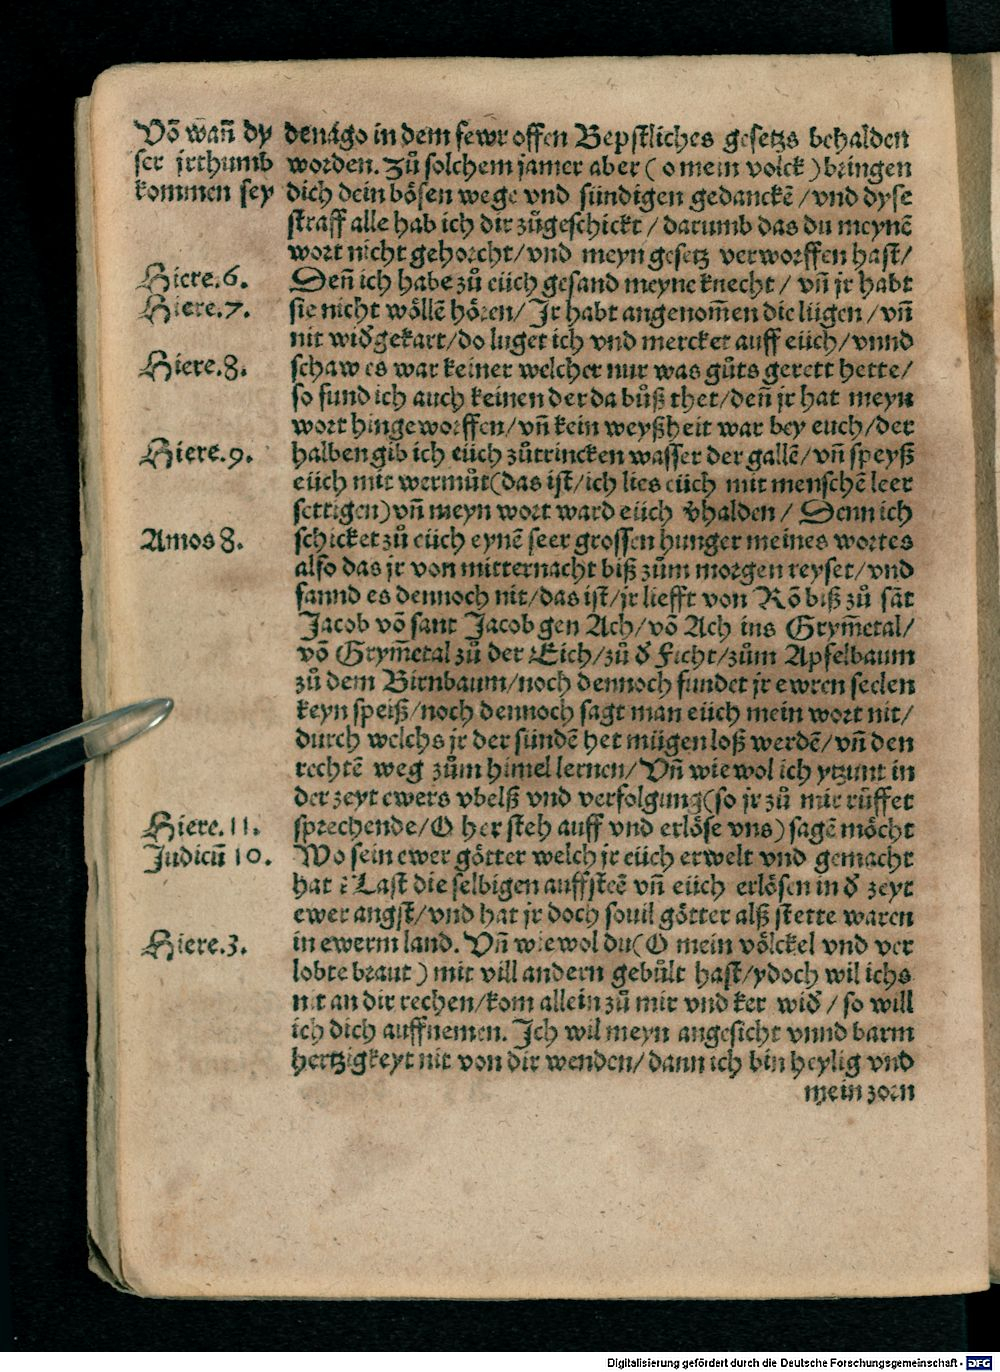 Võ wañ dy
ser jrthumb
kommen sey
denägo in dem fewr offen Bepstliches gesetzs behalden
worden. Zů solchem jamer aber ( o mein volck ) bringen
dich dein bösen wege vnd sündigen gedanckē / vnd dyse
straff alle hab ich dir zůgeschickt / darumb das du meynē
wort nicht gehorcht / vnd meyn gesetz verworffen hast /
Hiere. 6.
Deñ ich habe zů eüch gesand meyne knecht / vñ jr habt
Hiere. 7.
sie nicht wöllē hören / Jr habt angenom̄en die lügen / vñ
nit wiđgekart / do luget ich vnd mercket auff eüch / vnnd
Hiere. 8.
schaw es war keiner welcher nur was gůts gerett hette /
so fund ich auch keinen der da bůß thet / deñ jr hat meyn
wort hingeworffen / vñ kein weyßheit war bey euch / der
Hiere. 9.
halben gib ich eüch zůtrincken wasser der gallē / vñ speyß
eüch mit wermůt (das ist / ich lies eüch mit menschē leer
settigen) vñ meyn wort ward eüch v̊halden / Denn ich
Amos 8.
schicket zů eüch eynē seer grossen hunger meines wortes
also das jr von mitternacht biß zům morgen reyset / vnd
fannd es dennoch nit / das ist / jr liefft von Rō biß zů sāt
Jacob vō sant Jacob gen Ach / vō Ach ins Grym̄etal /
vō Grym̄etal zů der Eich / zů đ Ficht / zům Apfelbaum
zů dem Birnbaum / noch dennoch fundet jr ewren seelen
keyn speiß / noch dennoch sagt man eüch mein wort nit /
durch welchs jr der sündē het mügen loß werdē / vñ den
rechtē weg zům himel lernen / Vñ wie wol ich ytzunt in
der zeyt ewers vbelß vnd verfolgung (so jr zů mir rüffet
Hiere. 11.
sprechende / O her steh auff vnd erlöse vns) sagē möcht
Judicū 10.
Wo sein ewer götter welch jr eüch erwelt vnd gemacht
hat ē Last die selbigen auffsteē vñ eüch erlösen in đ zeyt
ewer angst / vnd hat jr doch souil götter alß stette waren
Hiere. 3.
in ewerm land. Vñ wie wol du (O mein völckel vnd ver
lobte braut ) mit vill andern gebůlt hast / ydoch wil ichs
nit an dir rechen / kom allein zů mir vnd ker wiđ / so will
ich dich auffnemen. Ich wil meyn angesicht vnnd barm
hertzigkeyt nit von dir wenden / dann ich bin heylig vnd
mein zorn
Digitalisierung gefördert durch die Deutsche Forschungsgemeinschaft - DFG